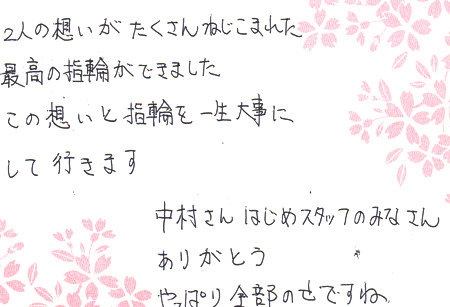 2人の想いがたくさんねじこまれた
最高の指輪ができました
この想いと指輪を一生大事に
して行きます
中村さんはじめスタッフのみなさん
ありがとう
やっぱり全部のせですね